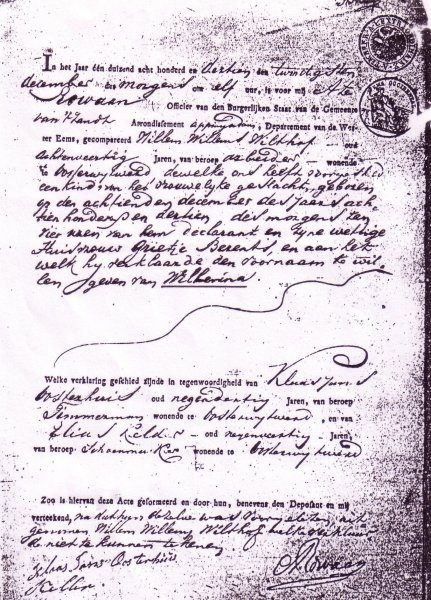 In het Jaar één duizend acht honderd en dertien den twindigsten
december des morgens om elf uur, is voor mij
Officier van den Burgerlijken Staat van de Gemeente
van 't Zandt Arrondissement appingadam, Departement van de Wes-
ter Eems, gecompareerd Willem Willems Wilthof — oud
achtenveertig Jaren, van beroep arbeider — wonende
te oosterwijtwerd, dewelke ons heeft
een kind van het vrouwelyke geslacht, geboren
op den achttienden december des jaars acht
tien honderd en dertien des morgens ten
vier uren van hem declarant en zyne wettige
Huisvrouw Grietje Berents, en aan het
welk hy verklaarde den voornaam te wil
len geven van Wilhemina.
Welke verklaring geschied zijnde in tegenwoordigheid van Klaas Jans
Oosterhuis oud negendertig Jaren, van beroep
Timmerman wonende te Oosterwytwerd, en van
Elias Kelder — oud negenveertig — Jaren,
van beroep Schoenmaker wonende te Oosterwytwerd
Zoo is hiervan deze Acte geformeerd en door hun, benevens den Deposant en mij
verteekend, na dat hun dezelve was voorgelezen, uit
genomen Willem Willems Wilthof hebbende verklaard
te niet te kunnen teekenen
Klaas Jans Oosterhuis